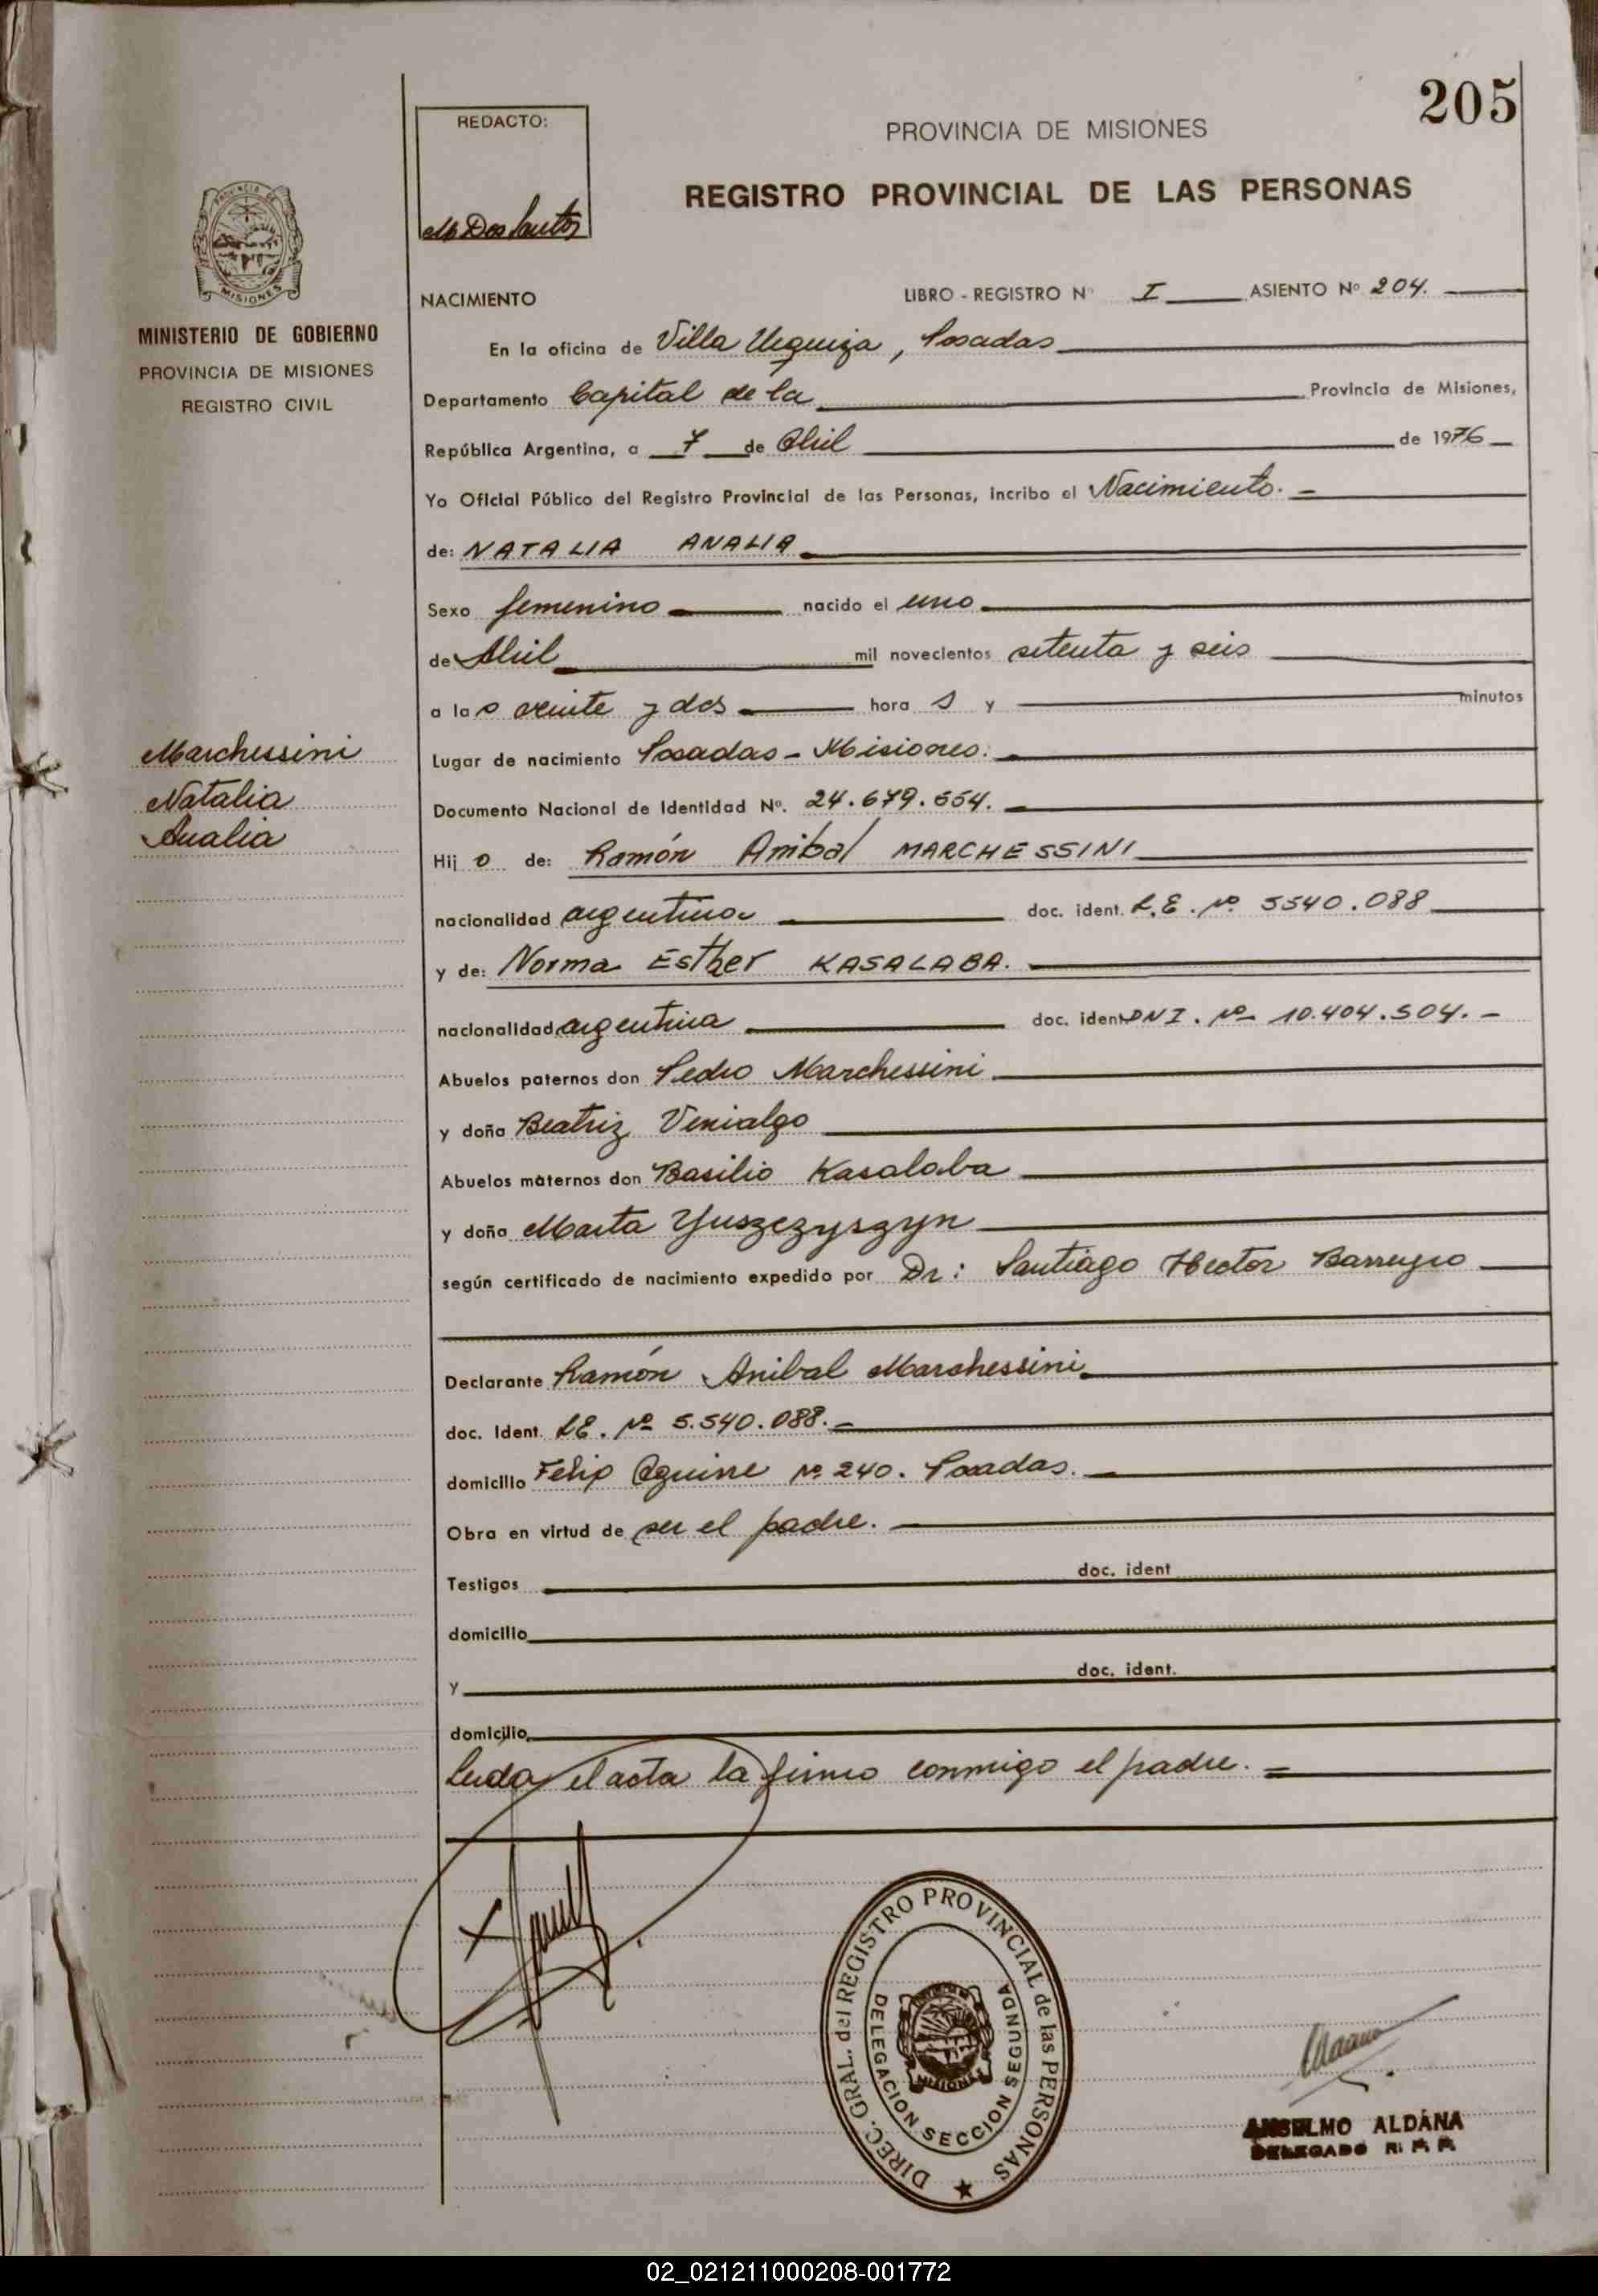 205
REDACTO:
M Dos Santos
PROVINCIA DE MISIONES
REGISTRO PROVINCIAL DE LAS PERSONAS
PROVINCIA DE
MISIONES
MINISTERIO DE GOBIERNO
PROVINCIA DE MISIONES
REGISTRO CIVIL
NACIMIENTO
LIBRO - REGISTRO Nº I ASIENTO Nº 204.
En la oficina de Villa Urquiza, Posadas
Departamento Capital de la Provincia de Misiones,
República Argentina, a 7 de Abril de 1976
Yo Oficial Público del Registro Provincial de las Personas, incribo el Nacimiento. -
de: NATALIA ANALIA
Sexo femenino nacido el uno
de Abril mil novecientos setenta y seis
a las veinte y dos hora s y minutos
Marchessini
Natalia
Analia
Lugar de nacimiento Posadas - Misiones.
Documento Nacional de Identidad Nº. 24.679.554.
Hij o de: Ramón Anibal MARCHESSINI
nacionalidad argentina doc. ident. L.E. Nº 5540.088
y de: Norma Esther KASALABA.
nacionalidad argentina doc. ident DNI. Nº 10.404.504. -
Abuelos paternos don Pedro Marchessini
y doña Beatriz Venialgo
Abuelos maternos don Basilio Kasalaba
y doña Marta Yuszczyszyn
según certificado de nacimiento expedido por Dr: Santiago Hector Barreyro
Declarante Ramón Anibal Marchessini
doc. Ident. LE. Nº 5.540.088. -
domicilio Felip Aguirre Nº 240. Posadas.
Obra en virtud de ser el padre.
Testigos doc. ident
domicilio
y doc. ident.
domicilio
Leida el acta la firmo conmigo el padre. =
X
DIREC. GRAL. del REGISTRO PROVINCIAL de las PERSONAS
DELEGACION SECCION SEGUNDA
MISIONES
ANSELMO ALDANA
DELEGADO R. P. P.
02_021211000208-001772